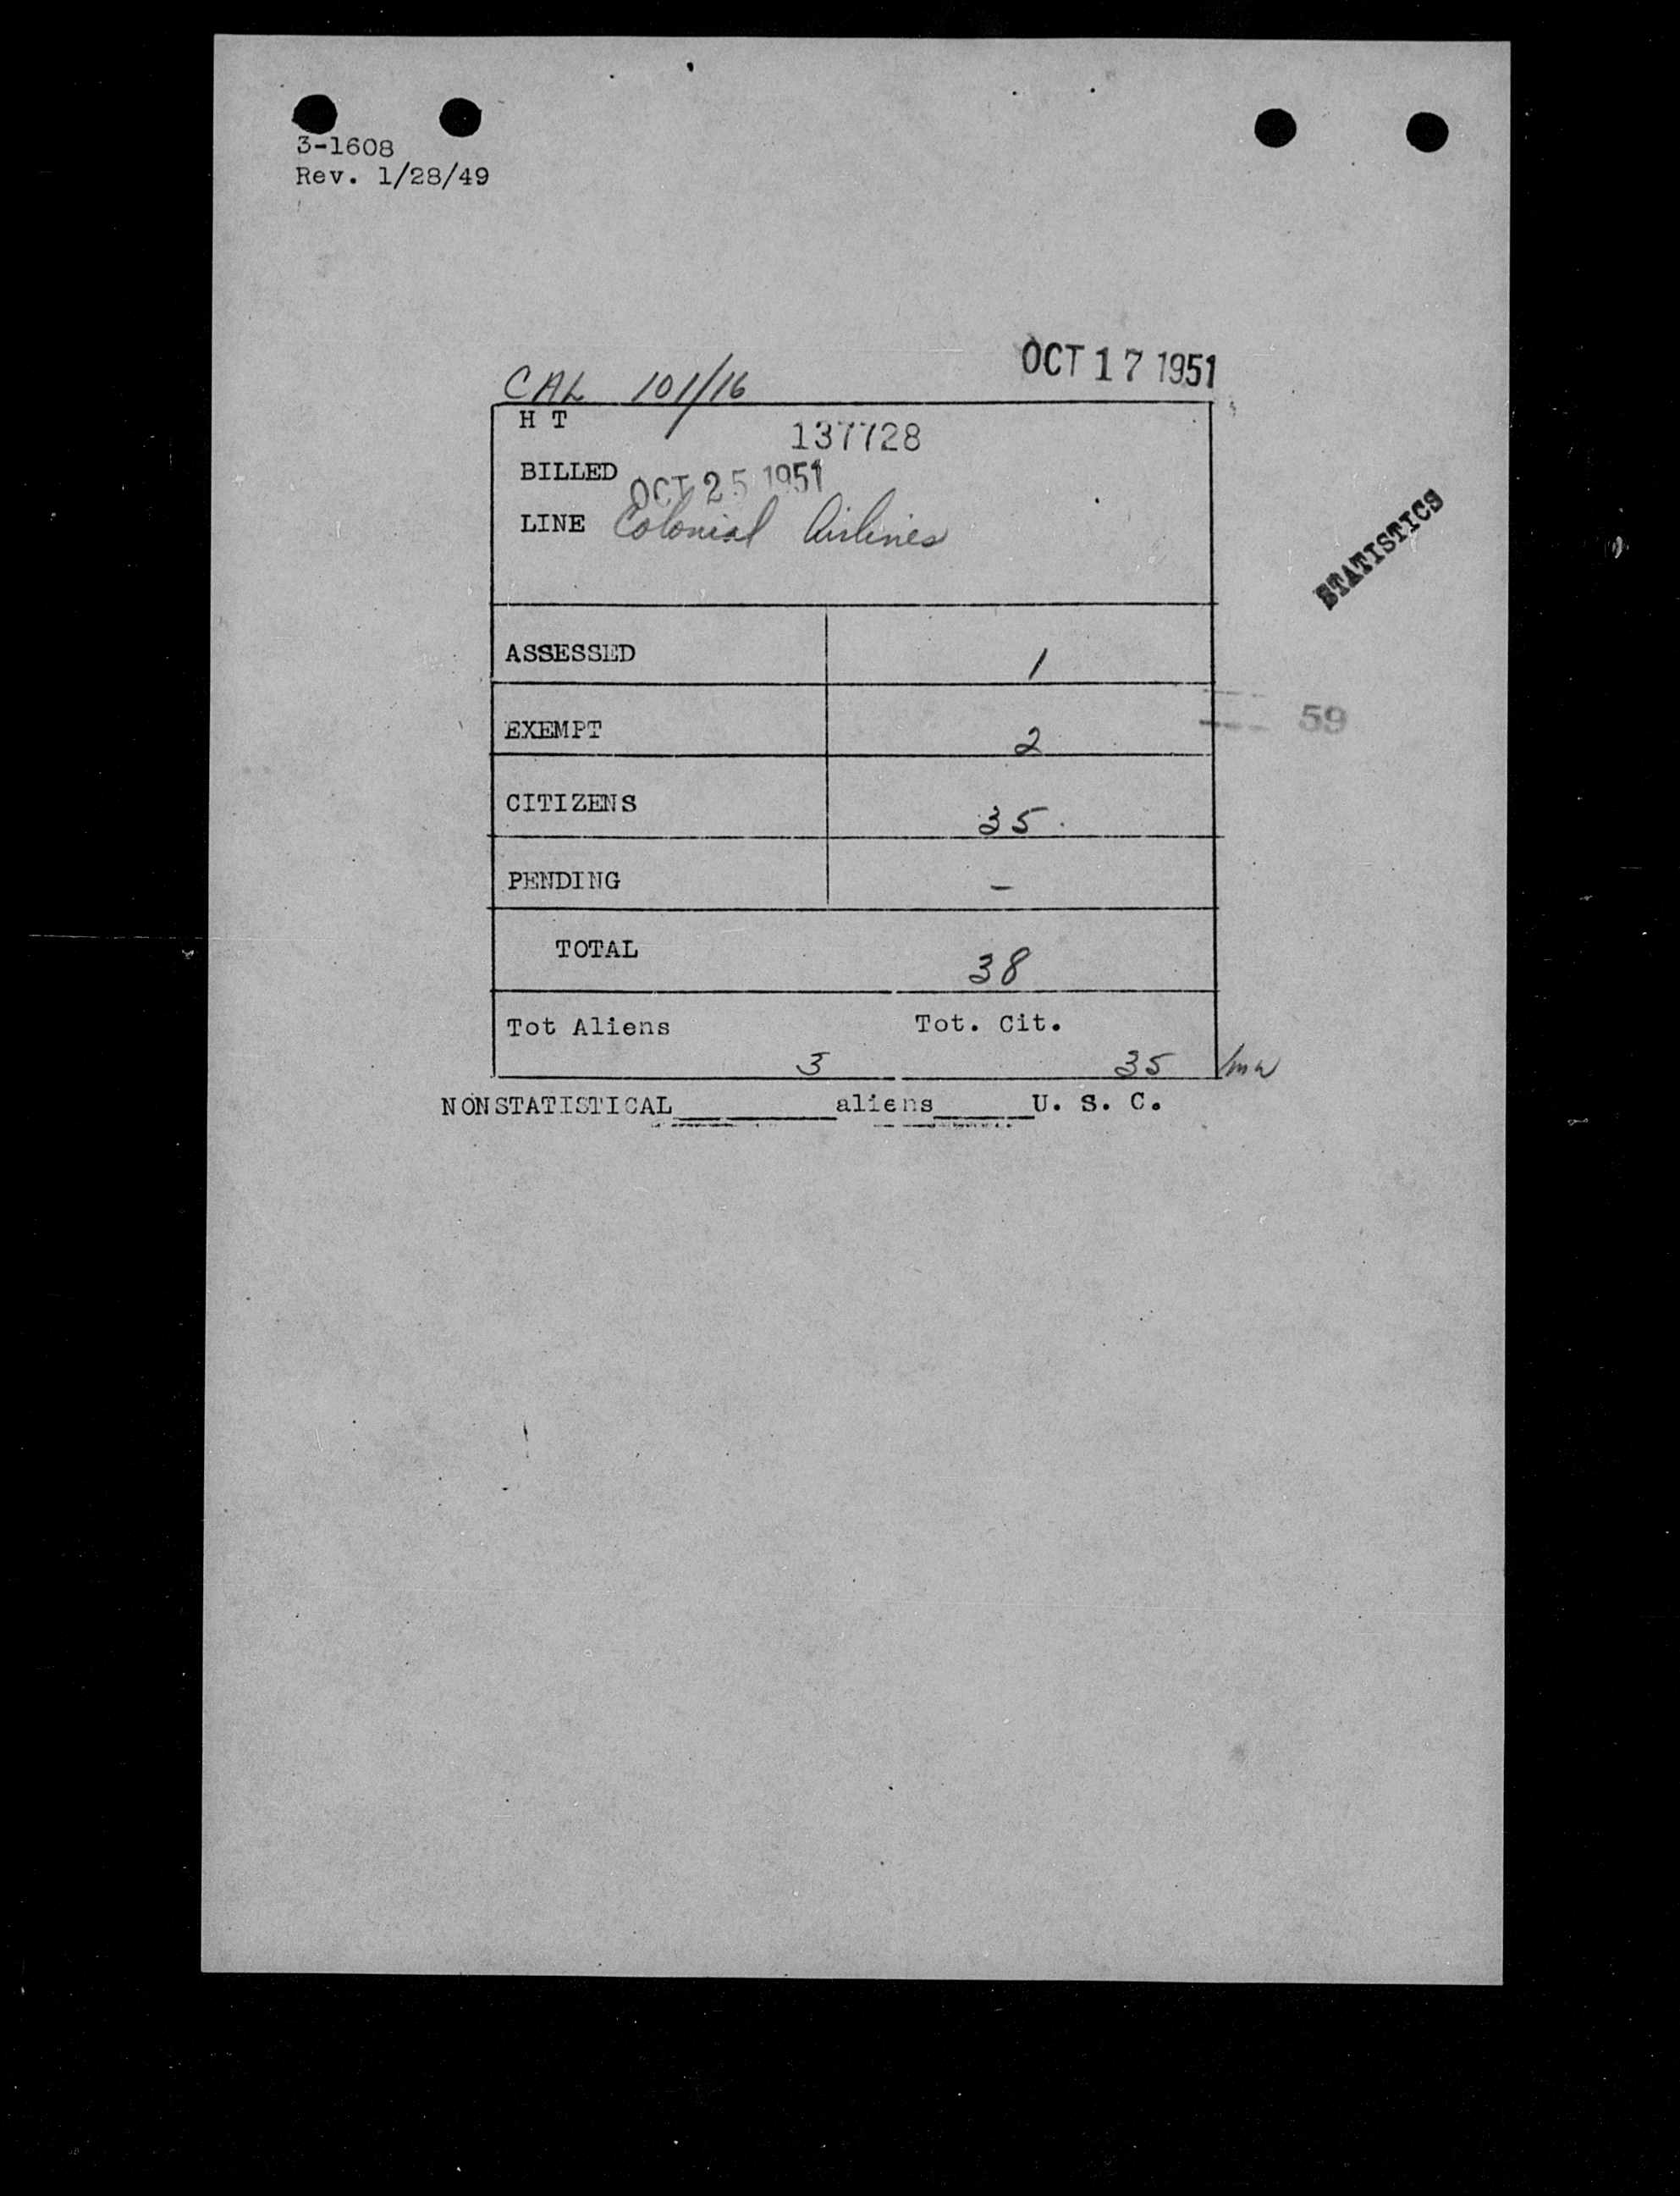 3-1608
Rev. 1/28/49
OCT 17 1951
CAL 101/16
H T
137728
BILLED OCT 25 1951
LINE Colonial Airlines
STATISTICS
ASSESSED 1
EXEMPT 2
59
CITIZENS 35
PENDING –
TOTAL 38
Tot Aliens Tot. Cit.
3 35
NONSTATISTICAL__________aliens______U. S. C.